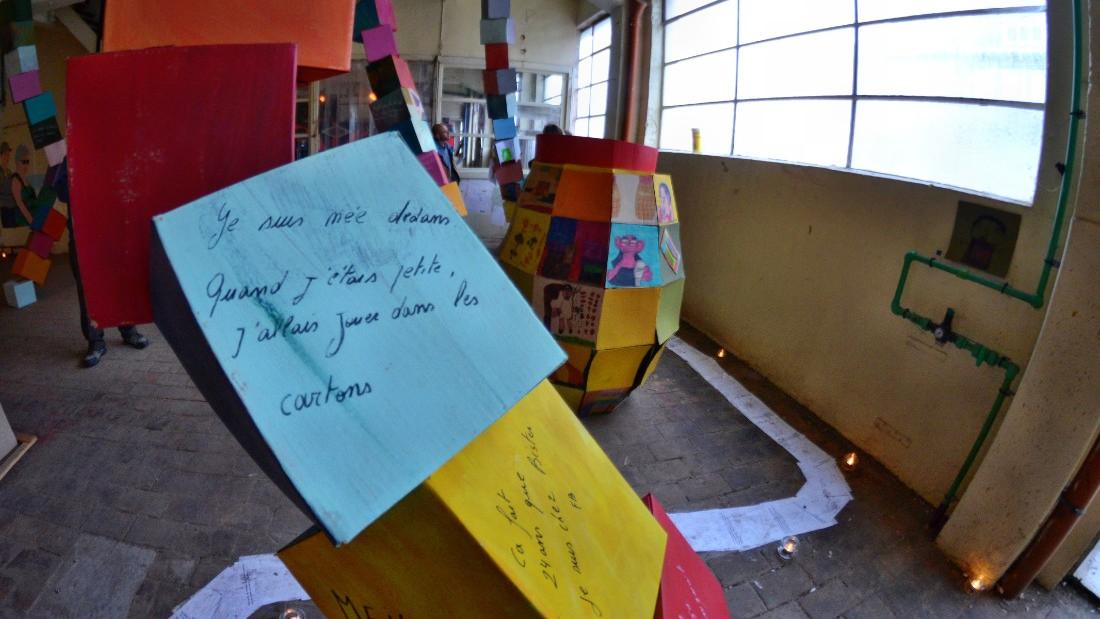 Je suis née dedans
Quand j'étais petite,
j'allais jouer dans les
cartons
Ca fait
24 ans que
je suis chez